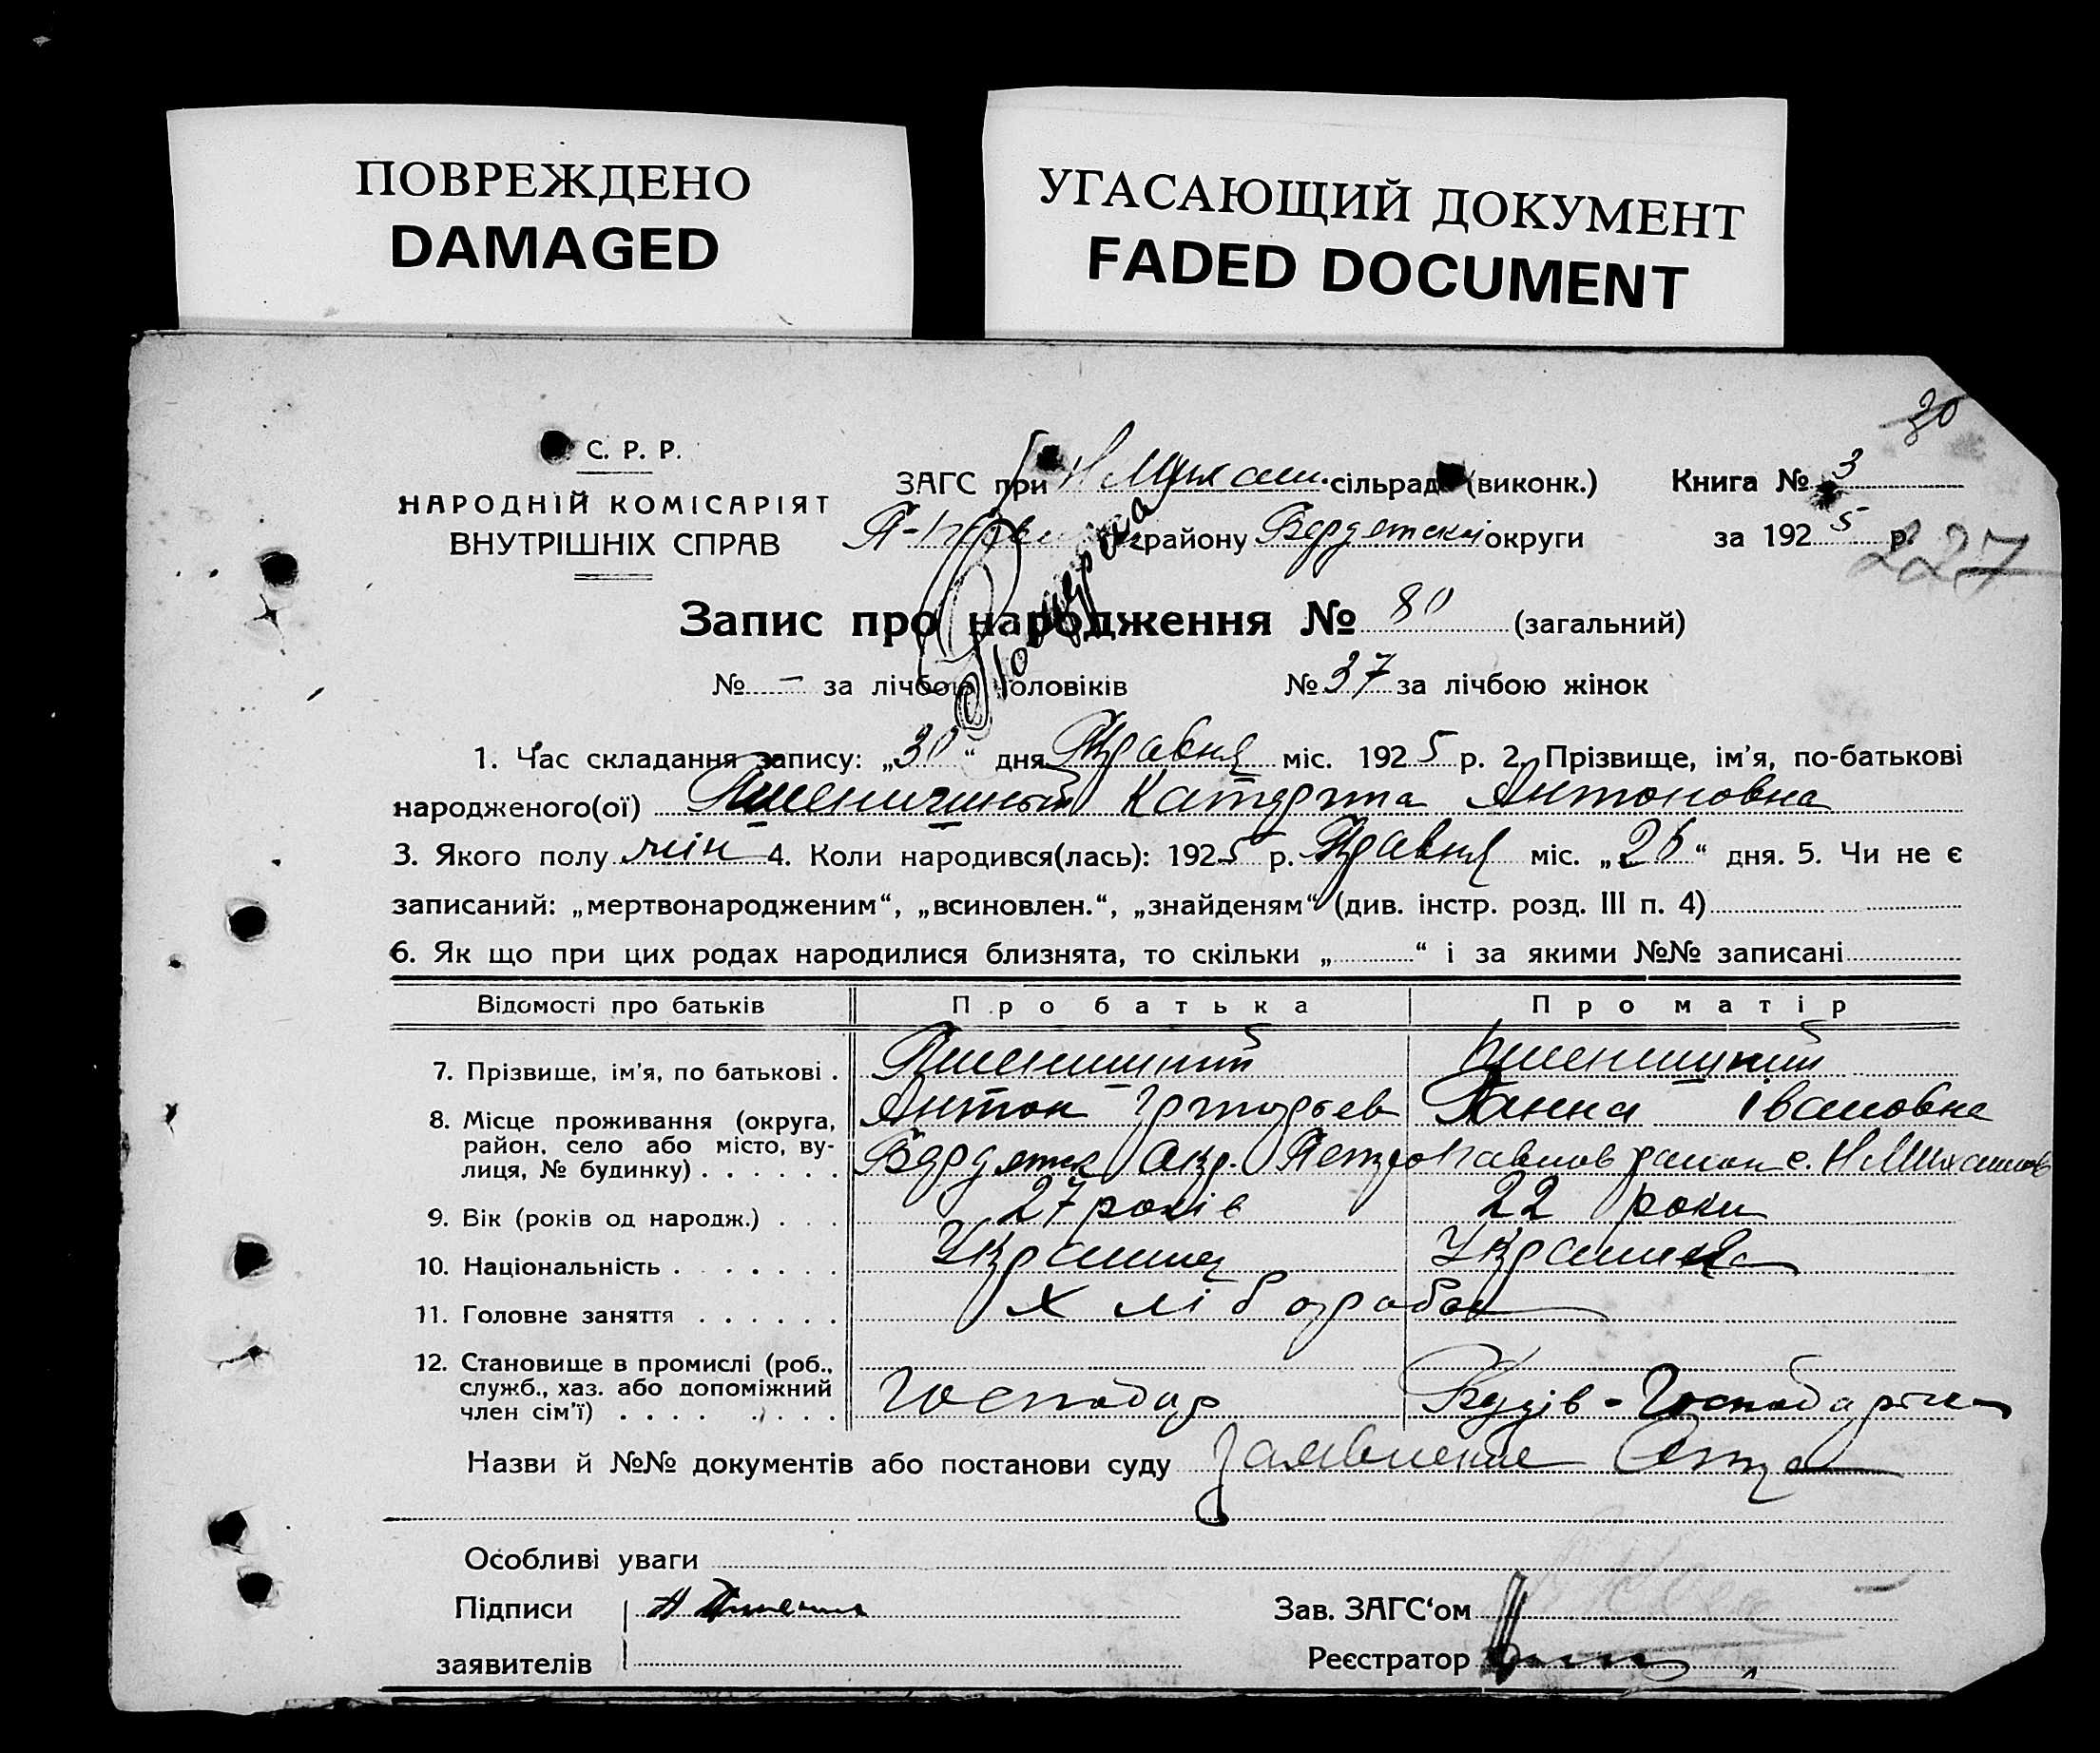 ПОВРЕЖДЕНО
DAMAGED
УГАСАЮЩИЙ ДОКУМЕНТ
FADED DOCUMENT
30
С. Р. Р.
НАРОДНІЙ КОМІСАРІЯТ
ВНУТРІШНІХ СПРАВ
ЗАГС при Н Михайл. сільрад (виконк.)
району Бердянській округи
Книга № 3
за 1925 р.
227
Запис про народження № 80 (загальний)
№ — за лічбою чоловіків № 37 за лічбою жінок
1. Час складання запису: „30“ дня Травня міс. 1925 р. 2. Прізвище, ім'я, по-батькові
народженого(ої) Пшеничный Катерина Антоновна
3. Якого полу жін 4. Коли народився(лась): 1925 р. Травня міс. „26“ дня. 5. Чи не є
записаний: „мертвонародженим“, „всиновлен.“, „знайденям“ (див. інстр. розд. III п. 4)
6. Як що при цих родах народилися близнята, то скільки „ “ і за якими №№ записані
Відомості про батьків Про батька Про матір
7. Прізвище, ім'я, по батькові . Пшеничний Пшеничний
Антон Григорьев Ганна Івановна
8. Місце проживання (округа,
район, село або місто, ву-
лиця, № будинку) . . . . . . Бердянськ Окр. Петропавлов район с. Н Михайлов
9. Вік (років од народж.) . . . 27 років 22 роки
10. Національність . . . . . . . Українец Українка
11. Головне заняття . . . . . . Хліборобство
12. Становище в промислі (роб.,
служб., хаз. або допоміжний
член сім'ї) . . . . . . . . Господар Господарка
Назви й №№ документів або постанови суду Заявление Отца
Особливі уваги
Підписи А Пшенич
заявителів
Зав. ЗАГС‘ом
Реєстратор